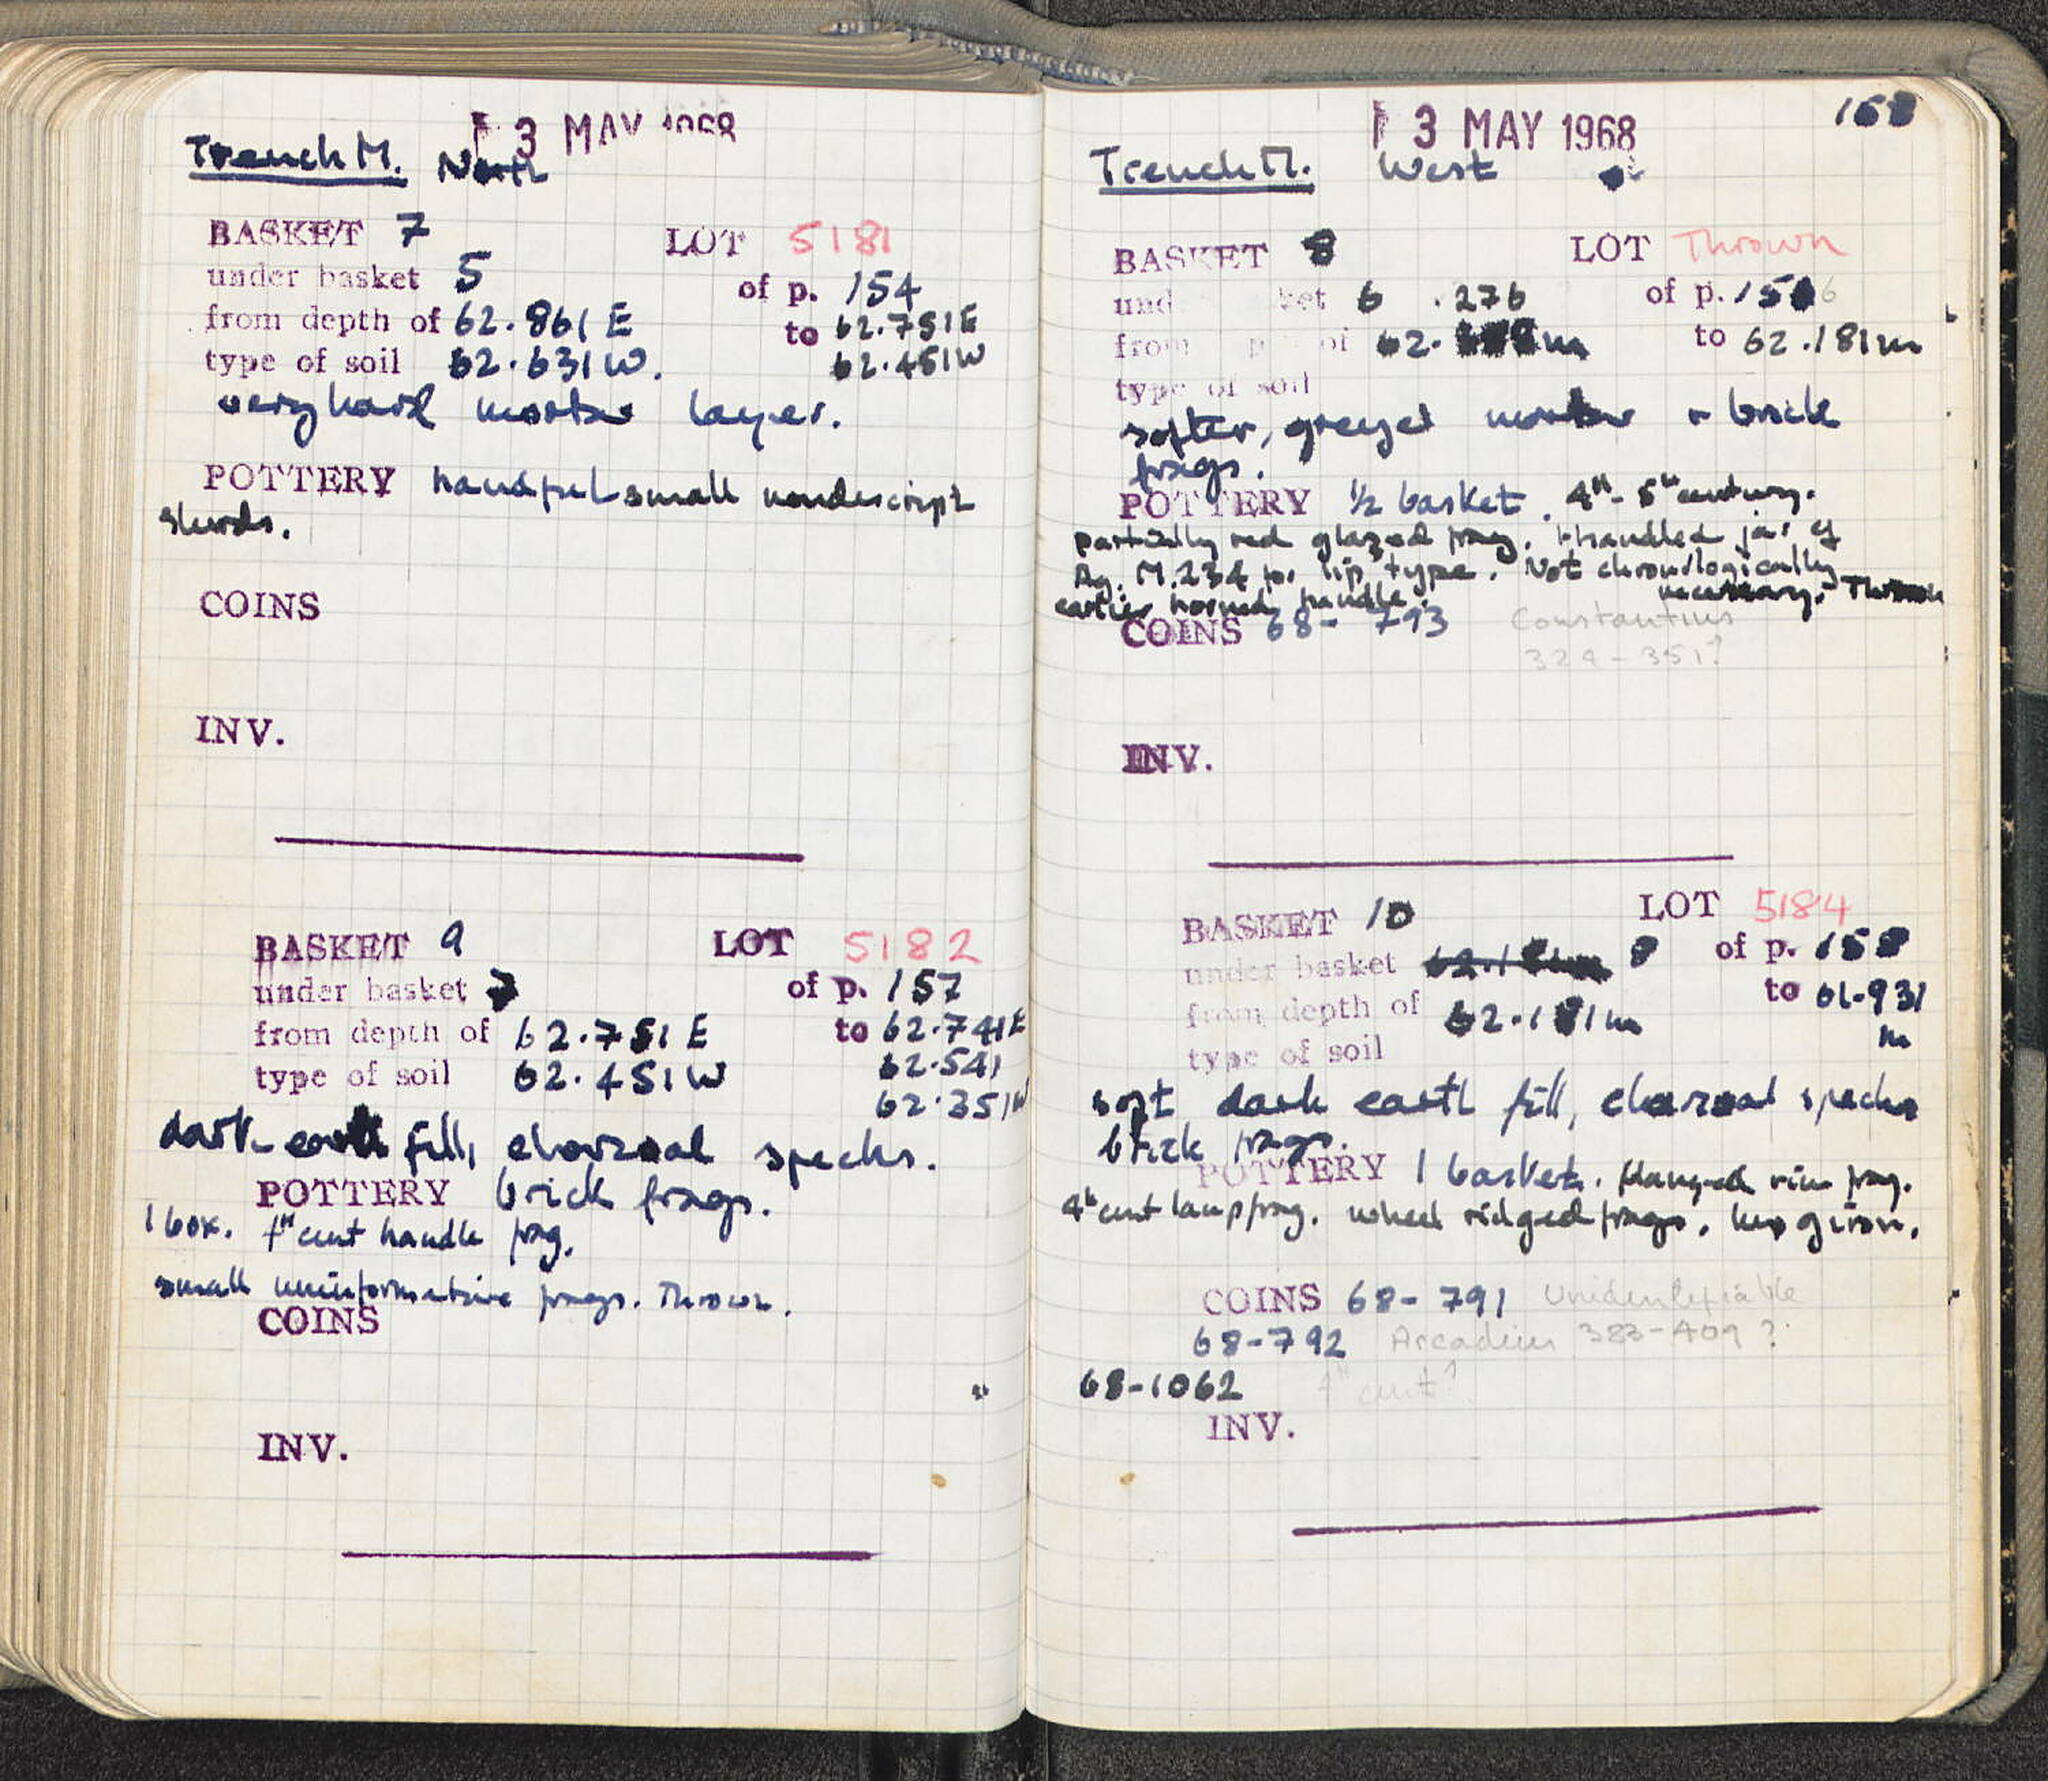 3 MAY 1968
Trench M. North
BASKET 7 LOT 5181
under basket 5 of p. 154
from depth of 62.861 E to 62.751 E
type of soil 62.631 W. 62.451 W
very hard mortar layer.
POTTERY handful small nondescript
sherds.
COINS
INV.
BASKET 9 LOT 5182
under basket 7 of p. 157
from depth of 62.751 E to 62.741 E
62.541
type of soil 62.451 W
62.351 W
dark earth fill, charcoal specks.
POTTERY brick frags.
1 box. 4th cent handle frag.
small uninformative frags. Thrown.
COINS
INV.
158
3 MAY 1968
Trench M. West
BASKET 8 LOT Thrown
und ket 6 of p. 156
.276
from of 62. m to 62.181 m
type of soil
softer, greyer mortar + brick
frags.
POTTERY 1/2 basket. 4th - 5th century.
partially red glazed frag. handled jar cf
Ag. M.234 for lip type. Not chronologically
necessary. Thrown
earlier horned handle.
COINS 68-793 Constantius
324-351?
INV.
BASKET 10 LOT 5184
under basket 8 of p. 158
from depth of 62.181 m to 61.931
m
type of soil
soft dark earth fill, charcoal specks
brick frags.
POTTERY 1 basket. flanged rim frag.
4th cent lamp frag. wheel ridged frags.
COINS 68-791 Unidentifiable
68-792 Arcadius 383-409?
68-1062 4th cent?
INV.